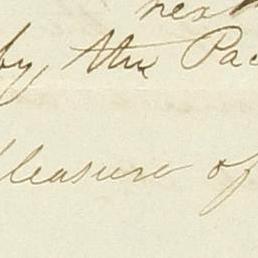 nex
by, the Pac
leasure of